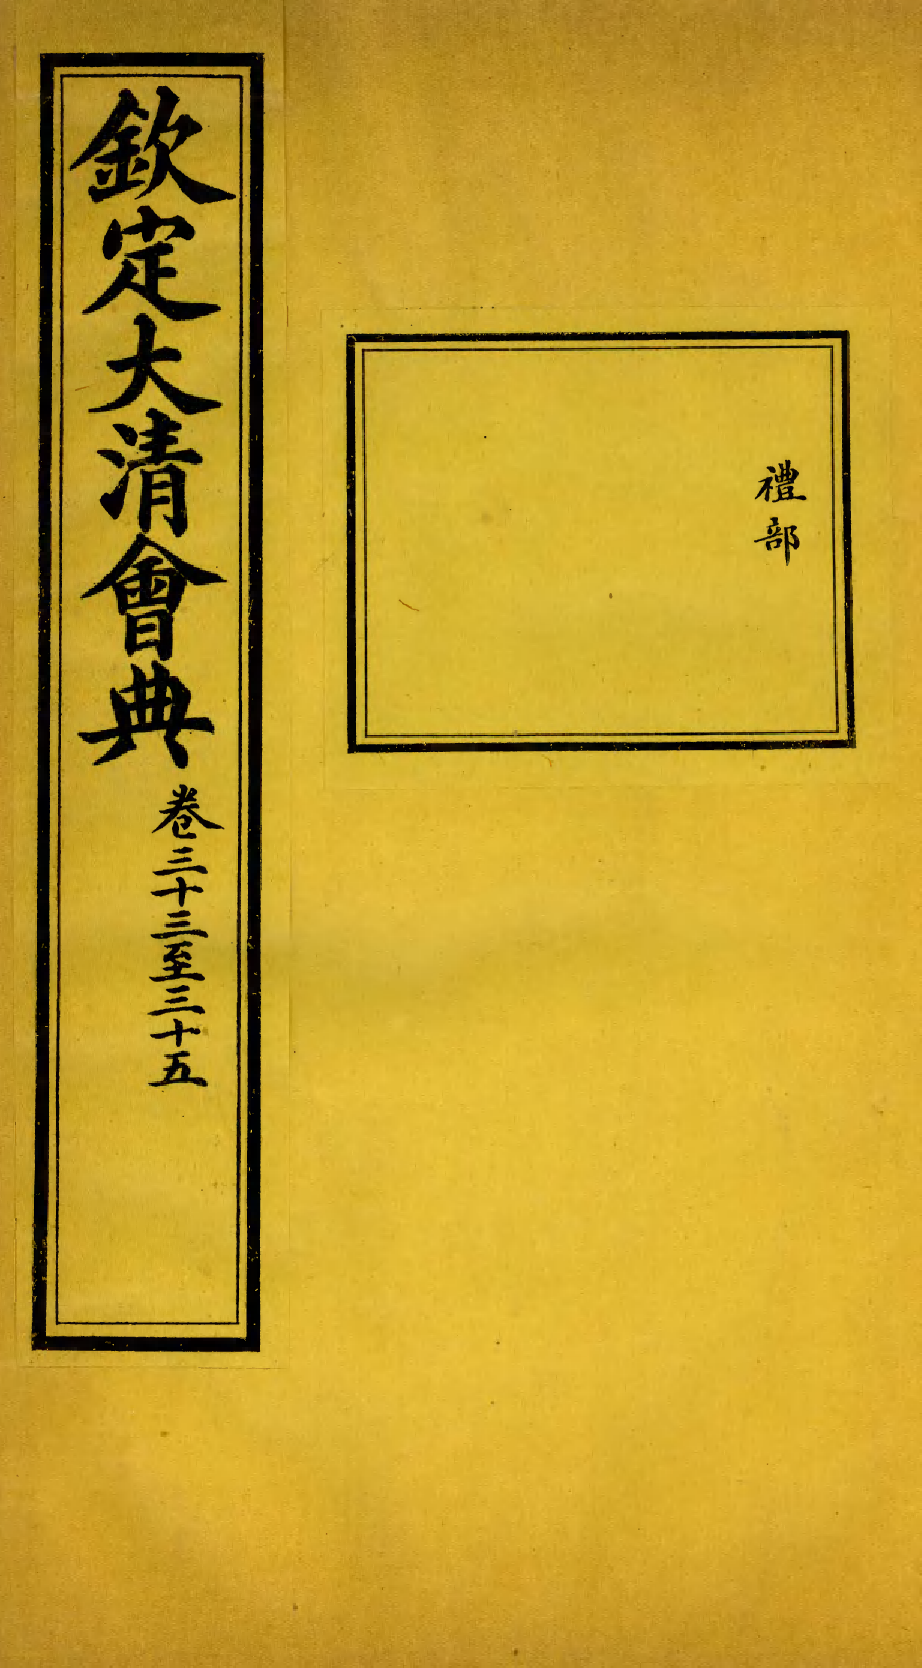 禮部
欽定大清會典卷三十三至三十五